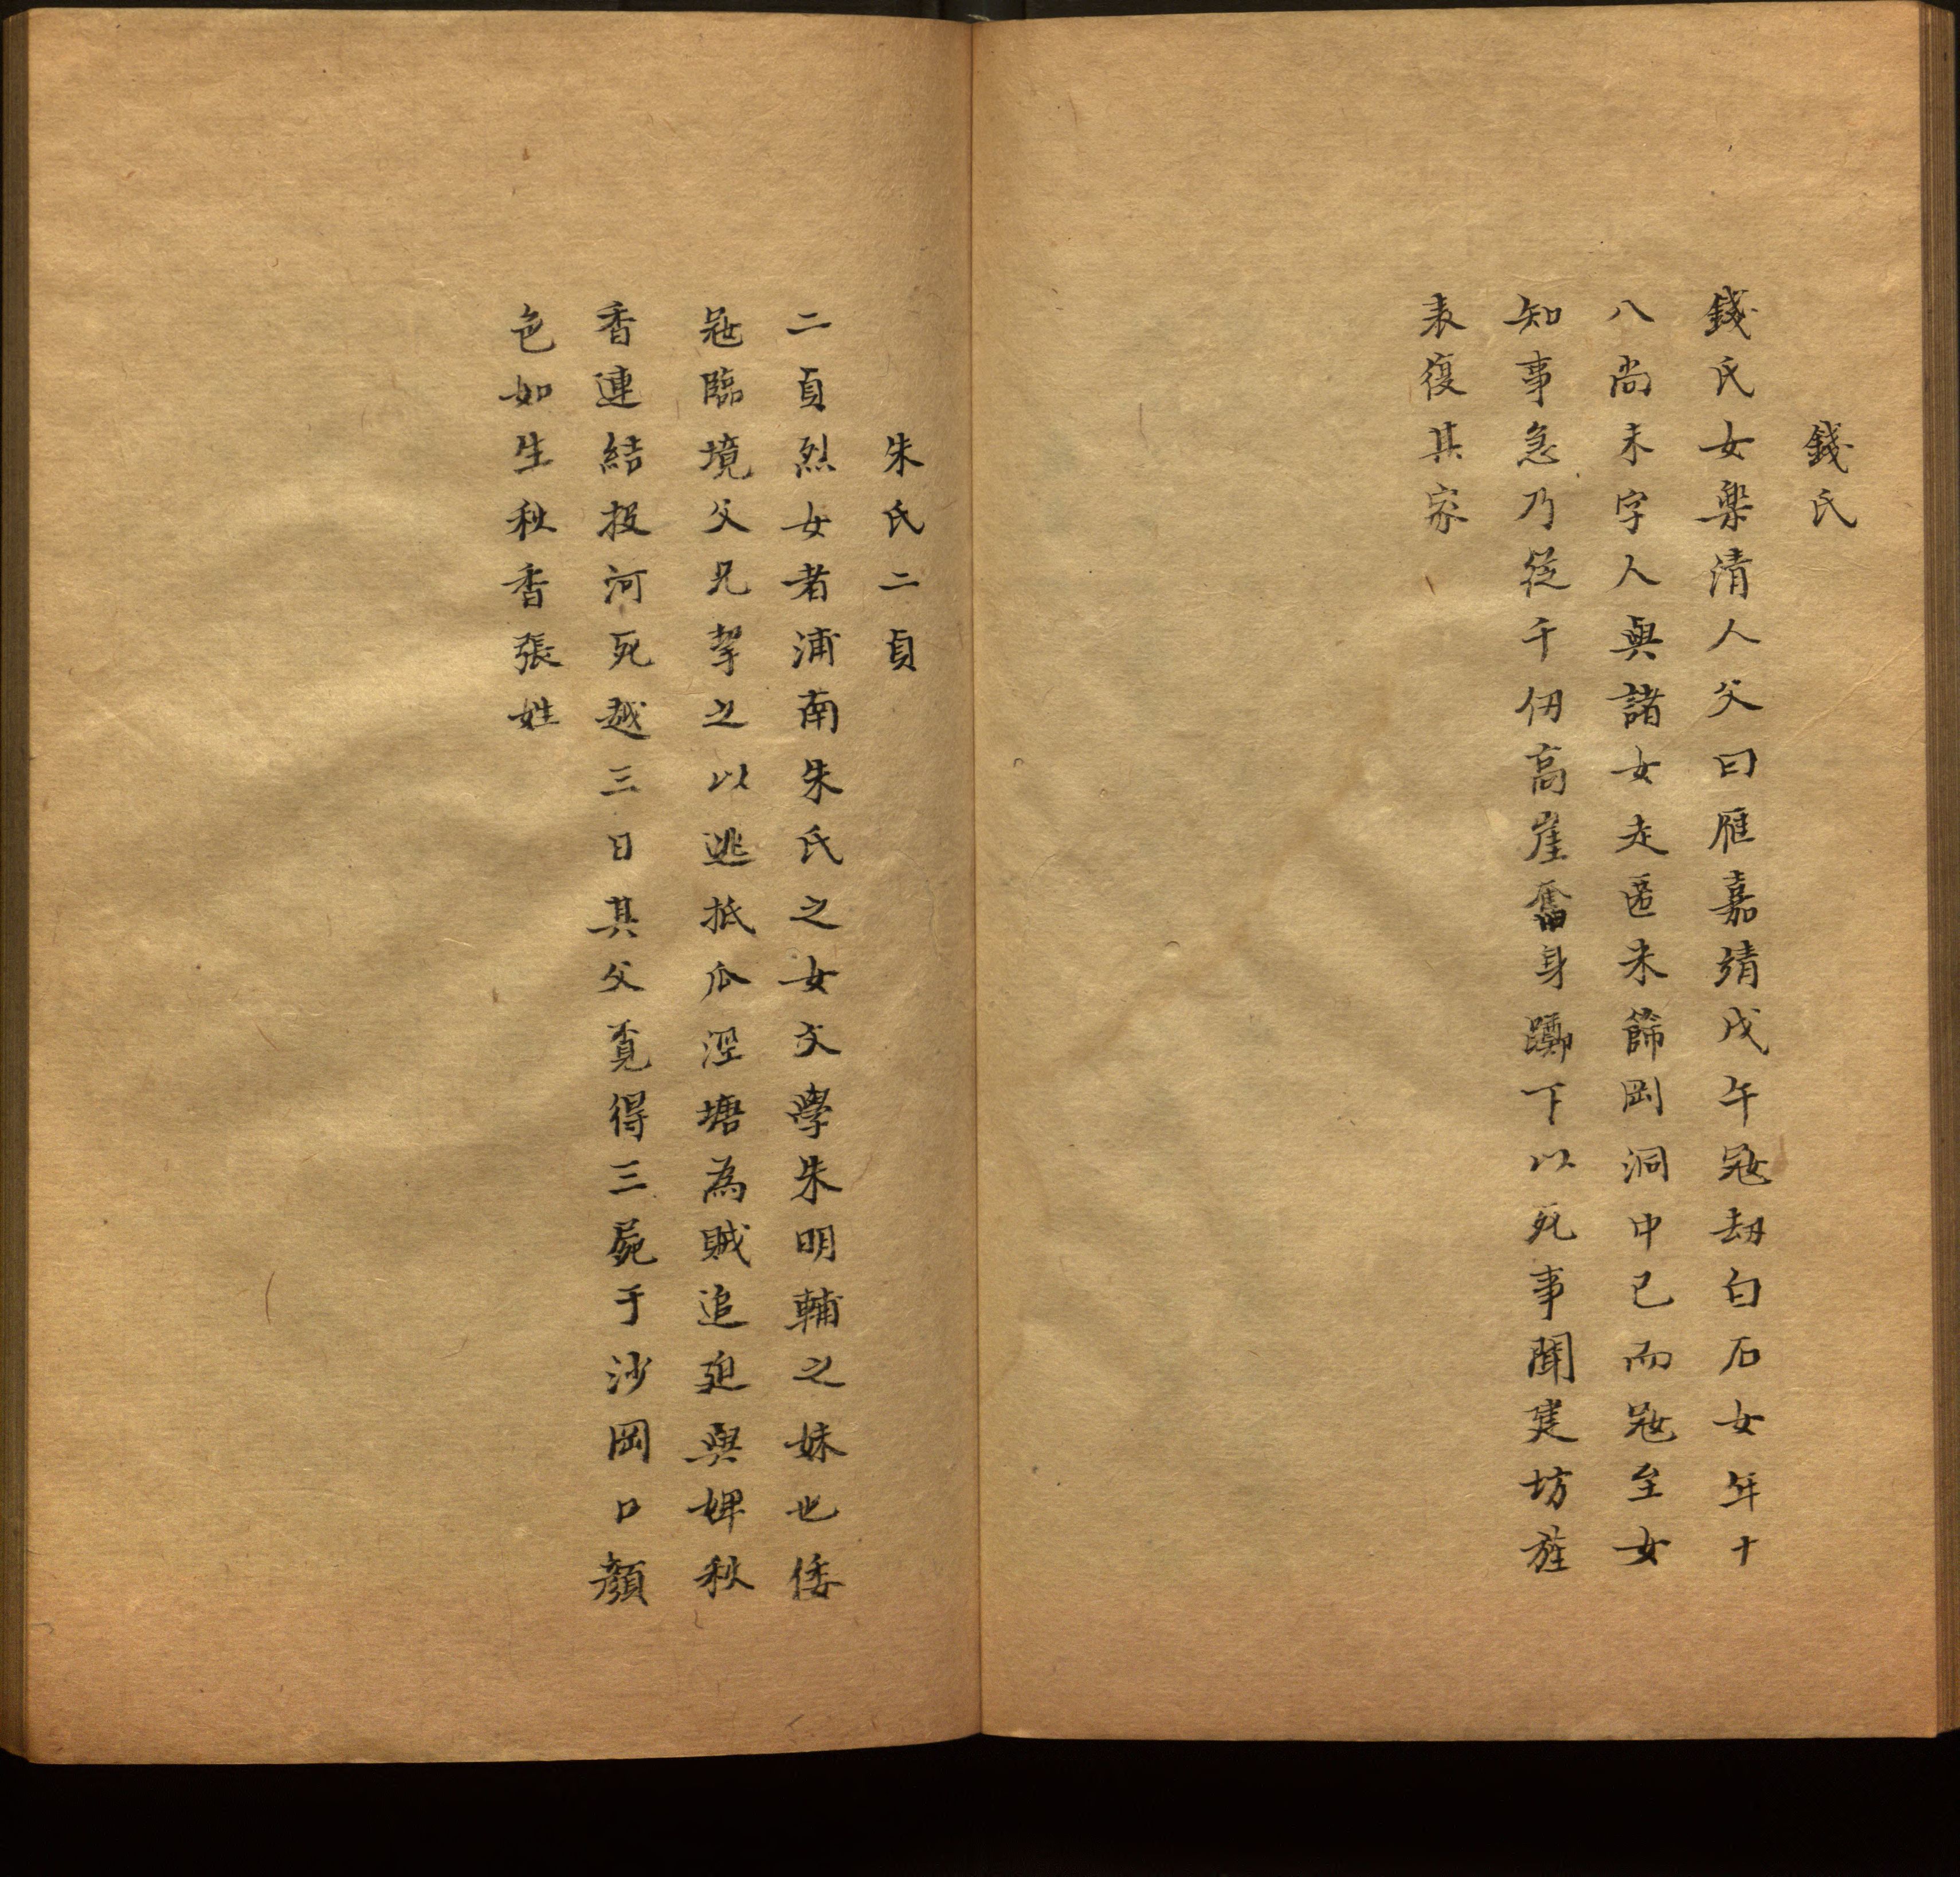 錢氏
錢氏女樂清人父曰雁嘉靖戊午冦劫白石女年十
八尚未字人與諸女走匿未篩岡洞中已而冦至女
知事急乃從千仞高崖奮身躑下以死事聞建坊旌
表復其家
朱氏二貞
二貞烈女者浦南朱氏之女文學朱明輔之妹也倭
冦臨境父兄挈之以逃抵瓜涇塘為賊追廹與婢秋
香連結投河死越三日其父覔得三屍于沙岡口顏
色如生秋香張姓